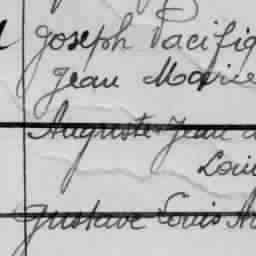 Joseph Pacifiq
Jean Marie
Auguste Jean
Loui
Gustave Louis